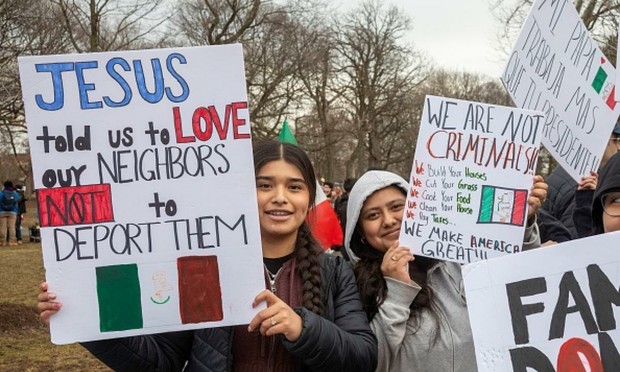 JESUS
told us to LOVE
our NEIGHBORS
NOT to
DEPORT THEM
WE ARE NOT
CRIMINALS!!
We Build Your Houses
We Cut Your Grass
We Cook Your Food
We Clean Your House
We Pay Taxes...
WE MAKE AMERICA
GREAT!!
MI PAPA
TRABAJA MAS
QUE TU
PRESIDENTE
FAM
DO